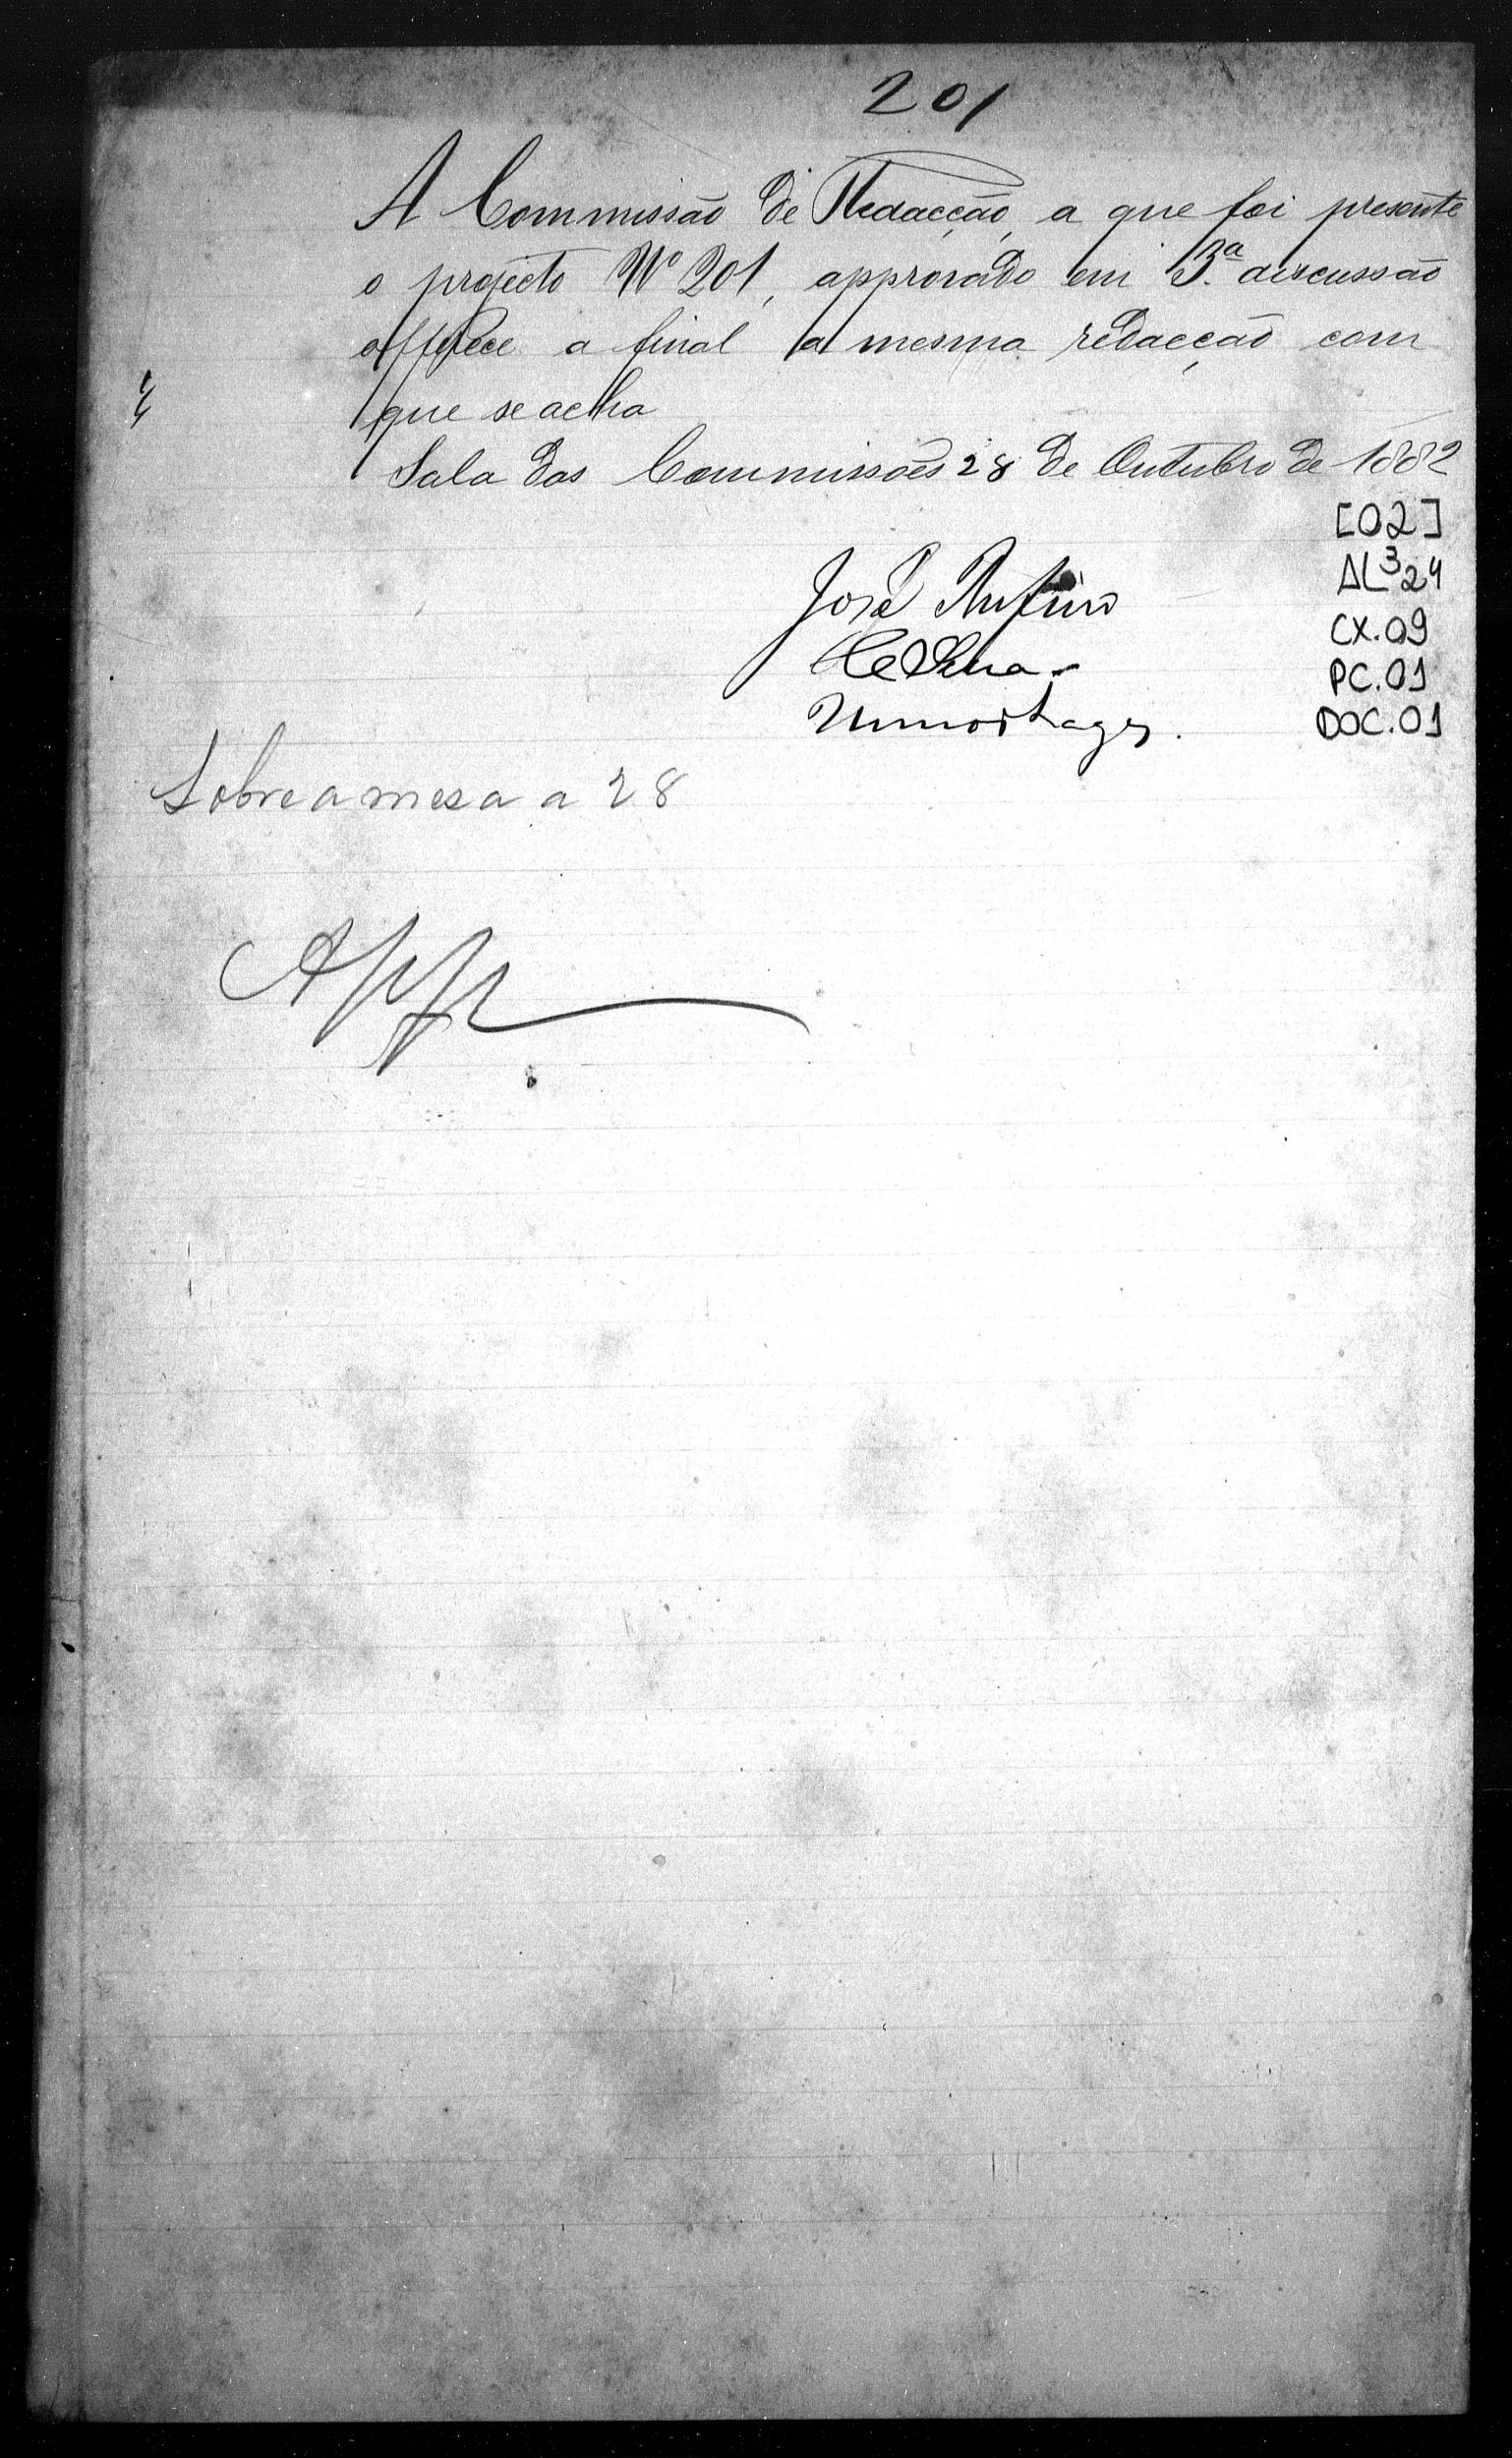 201
A Commissão de Redacção, a que foi presente
o projecto Nº 201, approvado em 3.ª discussão
offerece a final a mesma redacção com
que se acha
Sala das Commissões 28 de Outubro de 1882
[02]
AL³24
José Rufino
CX.09
PC.01
DOC.01
Sobre a mesa a 28
App